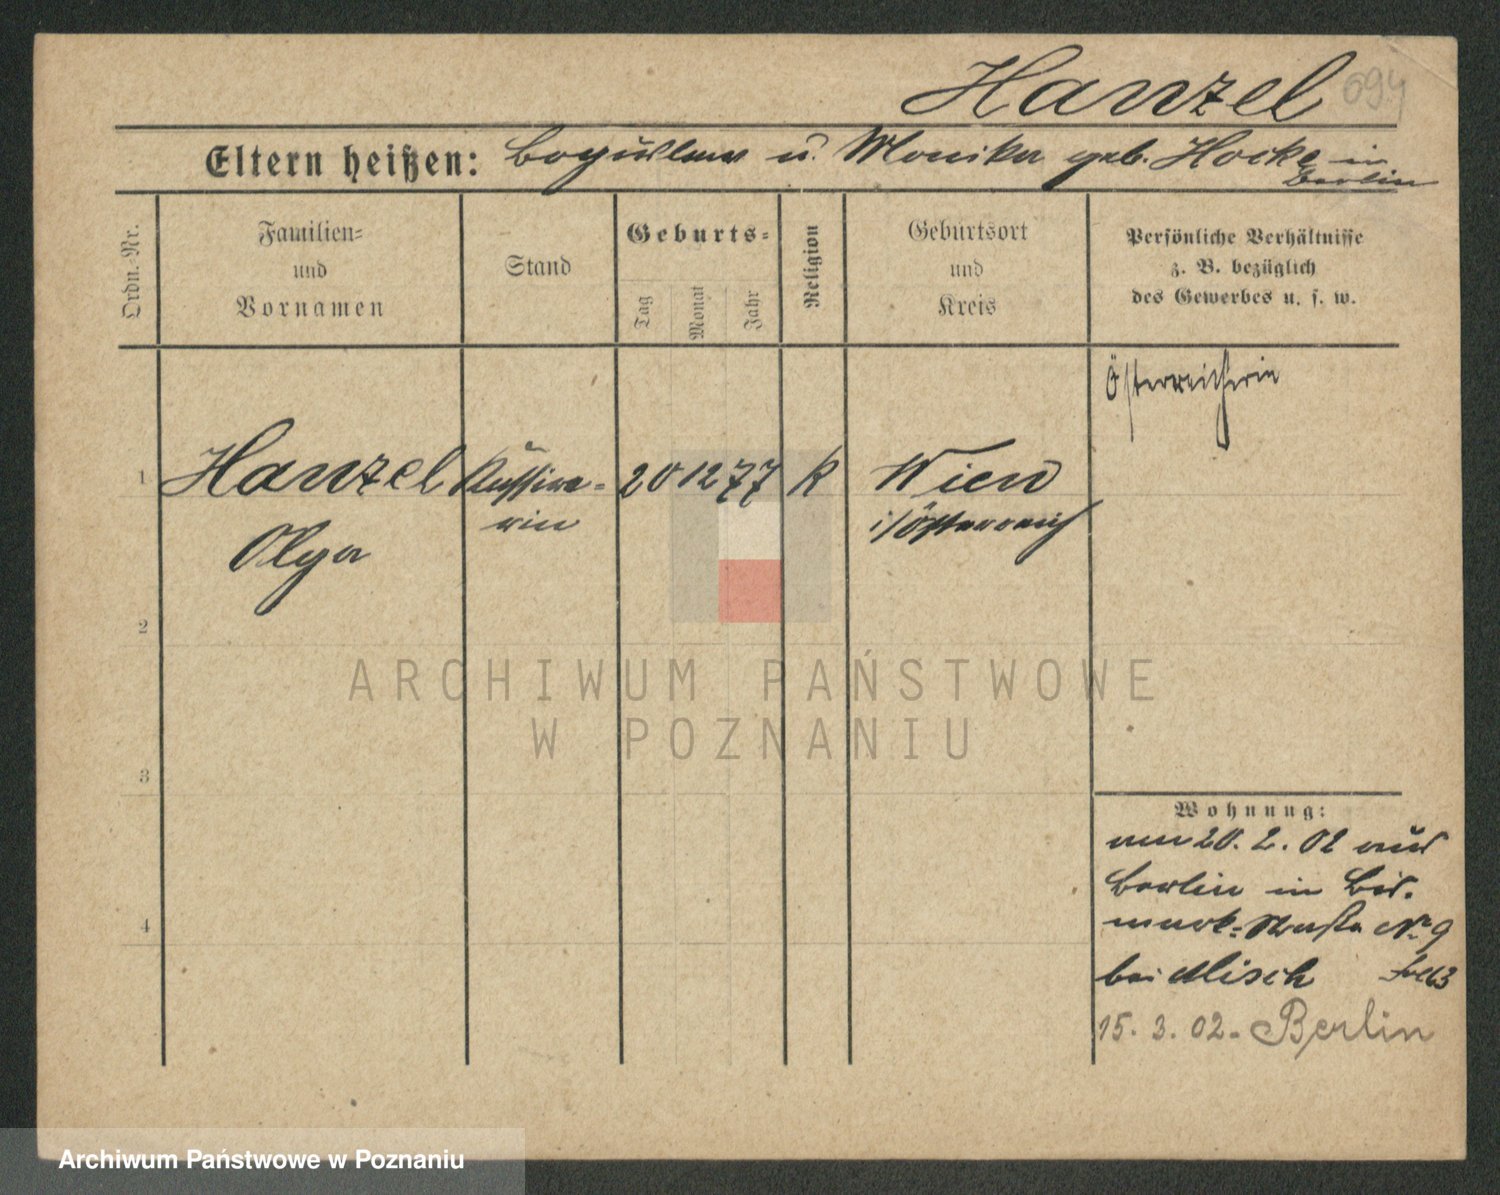 Hanzel 694
Eltern heißen: Boguslaus u. Monika geb. Hocke in
Berlin
Ordn.-Nr.
Familien-
und
Vornamen
Stand
Geburts-
Tag
Monat
Jahr
Religion
Geburtsort
und
Kreis
Persönliche Verhältnisse
z. B. bezüglich
des Gewerbes u. s. w.
Österreicherin
1 Hanzel Kassire- 20 12 77 k Wien
rin i/Österreich
Olga
2
3
4
Wohnung:
am 20. 2. 02 aus
Berlin in Bis-
mark-Straße No 9
bei Misch
15. 3. 02 - Berlin
ARCHIWUM PAŃSTWOWE
W POZNANIU
Archiwum Państwowe w Poznaniu